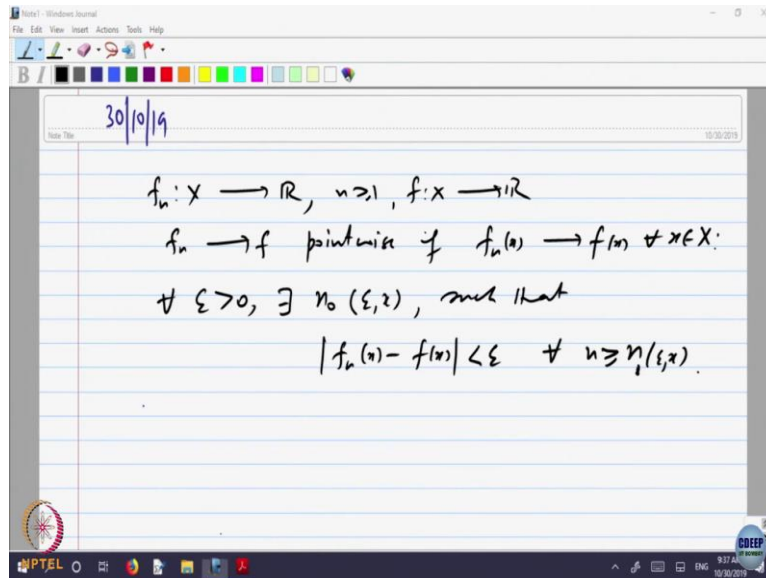 Note1 - Windows Journal
File Edit View Insert Actions Tools Help
B I
30/10/19
Note Title
10/30/2019
fₙ: X → ℝ, n ≥ 1, f: X → ℝ
fₙ → f pointwise if fₙ(x) → f(x) ∀ x ∈ X:
∀ ε > 0, ∃ n₀(ε, x), such that
|fₙ(x) - f(x)| < ε ∀ n ≥ n₁(ε, x).
NPTEL
CDEEP
IIT BOMBAY
ENG
9:37 AM
10/30/2019